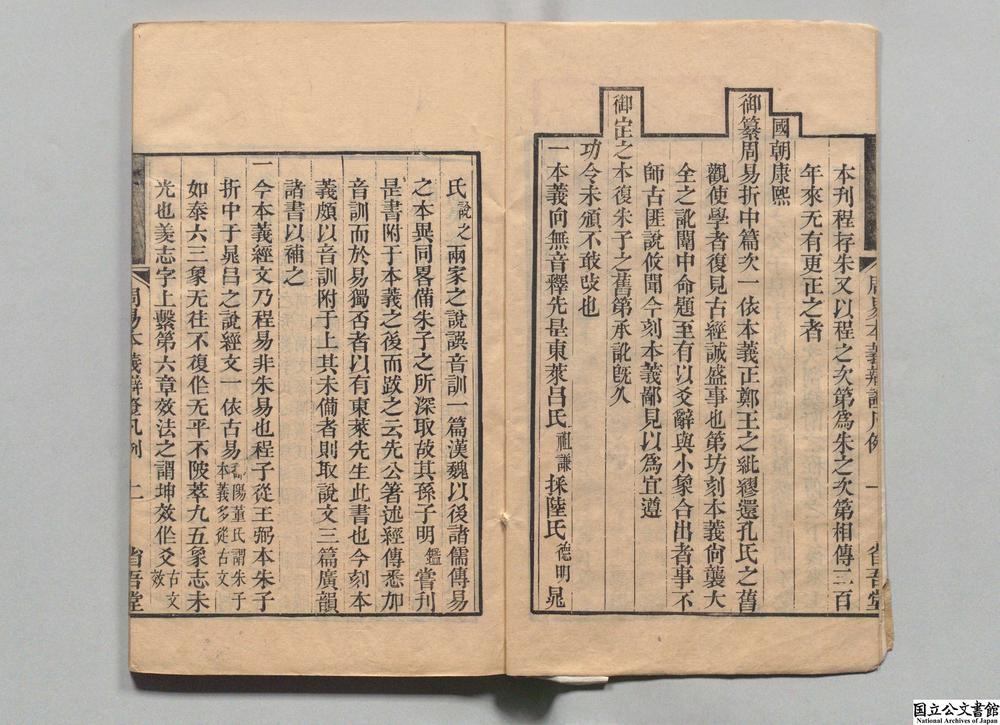 本刊程存朱又以程之次第爲朱之次第相傳三百
年來无有更正之者
國朝康熙
御纂周易折中篇次一依本義正鄭王之紕繆還孔氏之舊
觀使學者復見古經誠盛事也第坊刻本義尙襲大
全之訛闈中命題至有以爻辭與小象合出者事不
師古匪說攸聞今刻本義鄙見以爲宜遵
御定之本復朱子之舊第承訛旣久
功令未頒不敢攺也
一本義向無音釋先是東萊呂氏祖謙採陸氏德明晁
氏說之兩家之說譔音訓一篇漢魏以後諸儒傳易
之本異同畧備朱子之所深取故其孫子明鑑嘗刋
是書附于本義之後而跋之云先公著述經傳悉加
音訓而於易獨否者以有東萊先生此書也今刻本
義頗以音訓附于上其未備者則取說文三篇廣韻
諸書以補之
一今本義經文乃程易非朱易也程子從王弼本朱子
折中于晁呂之說經文一依古易鄱陽董氏謂朱子本義多從古文
如泰六三象无往不復作无平不陂萃九五象志未
光也羨志字上繫第六章效法之謂坤效作爻古文效
周易本義辨證凡例 一 省吾堂
周易本義辨證凡例 二 省吾堂
国立公文書館
National Archives of Japan